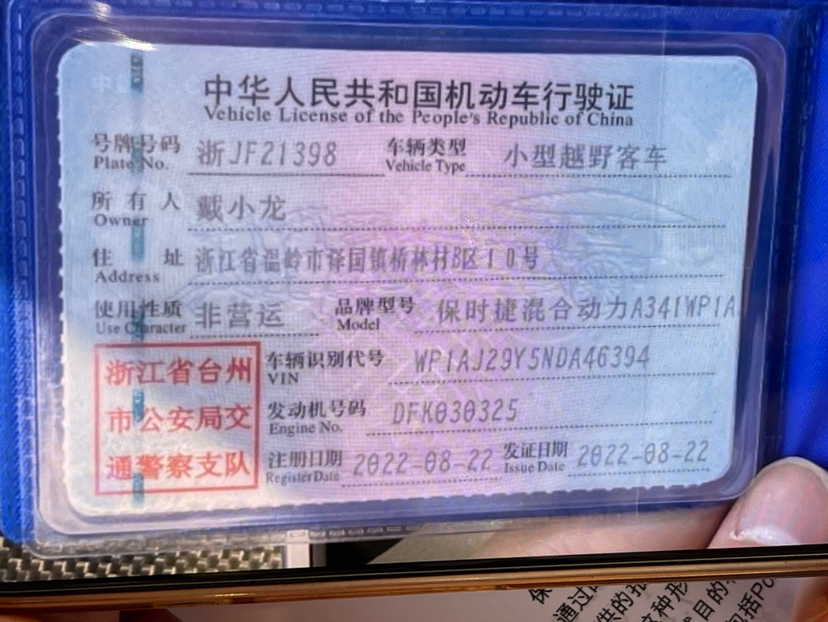 中华人民共和国机动车行驶证
Vehicle License of the People's Republic of China
号牌号码 浙JF21398 车辆类型 小型越野客车
Plate No. Vehicle Type
所有人 戴小龙
Owner
住址 浙江省温岭市泽国镇桥林村B区10号
Address
使用性质 非营运 品牌型号 保时捷混合动力A341WP1A
Use Character Model
浙江省台州
市公安局交
通警察支队
车辆识别代号 WP1AJ29Y5NDA46394
VIN
发动机号码 DFK030325
Engine No.
注册日期 2022-08-22 发证日期 2022-08-22
Register Date Issue Date
通过
供的
这种形
目的
包括Po